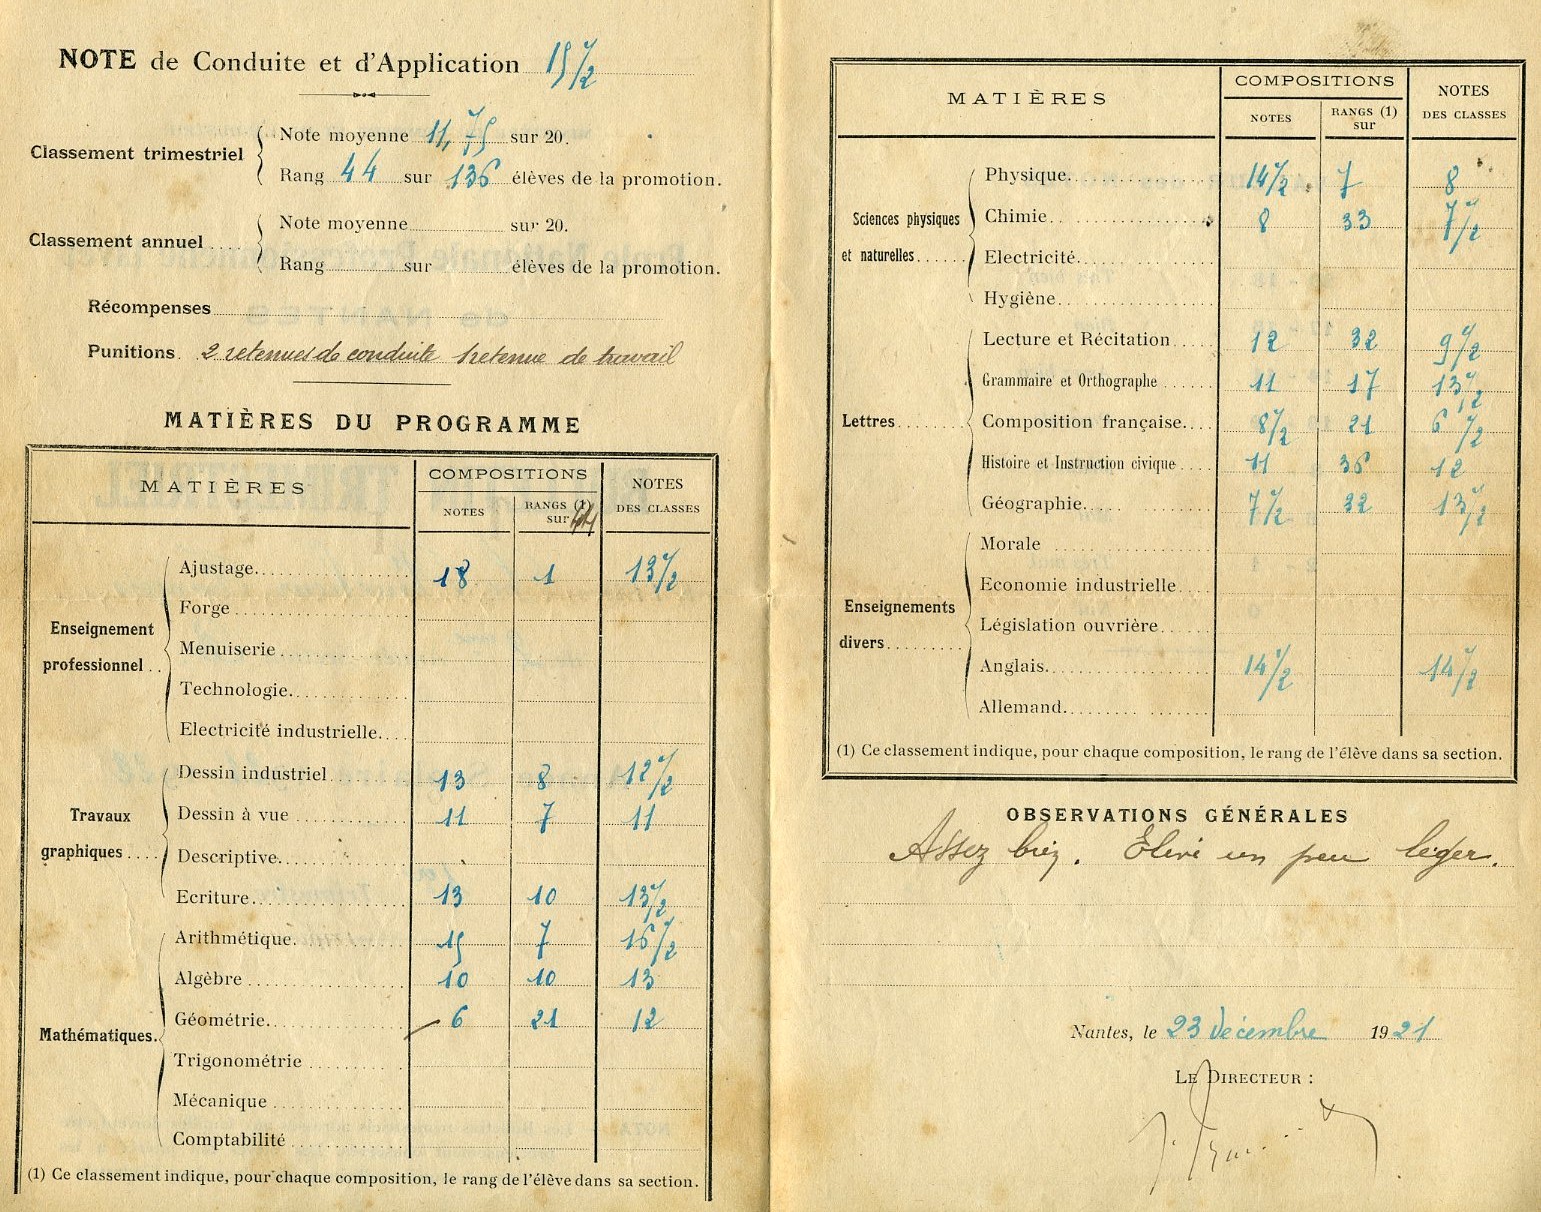 NOTE de Conduite et d'Application 15 1/2
Classement trimestriel
Note moyenne 11,75 sur 20.
Rang 44 sur 136 élèves de la promotion.
Classement annuel
Note moyenne sur 20.
Rang sur élèves de la promotion.
Récompenses
Punitions. 2 retenues de conduite 1 retenue de travail
MATIÈRES DU PROGRAMME
MATIÈRES COMPOSITIONS NOTES DES CLASSES
NOTES RANGS (1) sur 44
Enseignement professionnel
Ajustage 18 1 13 1/2
Forge
Menuiserie
Technologie
Electricité industrielle
Travaux graphiques
Dessin industriel 13 8 12 1/2
Dessin à vue 11 7 11
Descriptive
Ecriture 13 10 13 1/2
Mathématiques
Arithmétique 15 7 16 1/2
Algèbre 10 10 13
Géométrie 6 21 12
Trigonométrie
Mécanique
Comptabilité
(1) Ce classement indique, pour chaque composition, le rang de l'élève dans sa section.
MATIÈRES COMPOSITIONS NOTES DES CLASSES
NOTES RANGS (1) sur
Sciences physiques et naturelles
Physique 14 1/2 7 8
Chimie 8 33 7 1/2
Electricité
Hygiène
Lettres
Lecture et Récitation 12 32 9 1/2
Grammaire et Orthographe 11 17 13 1/2
Composition française 8 1/2 21 6 1/2
Histoire et Instruction civique 11 36 12
Géographie 7 1/2 32 13 1/2
Enseignements divers
Morale
Economie industrielle
Législation ouvrière
Anglais 14 1/2 14 1/2
Allemand
(1) Ce classement indique, pour chaque composition, le rang de l'élève dans sa section.
OBSERVATIONS GÉNÉRALES
Assez bien. Elève un peu léger.
Nantes, le 23 décembre 1921
LE DIRECTEUR :